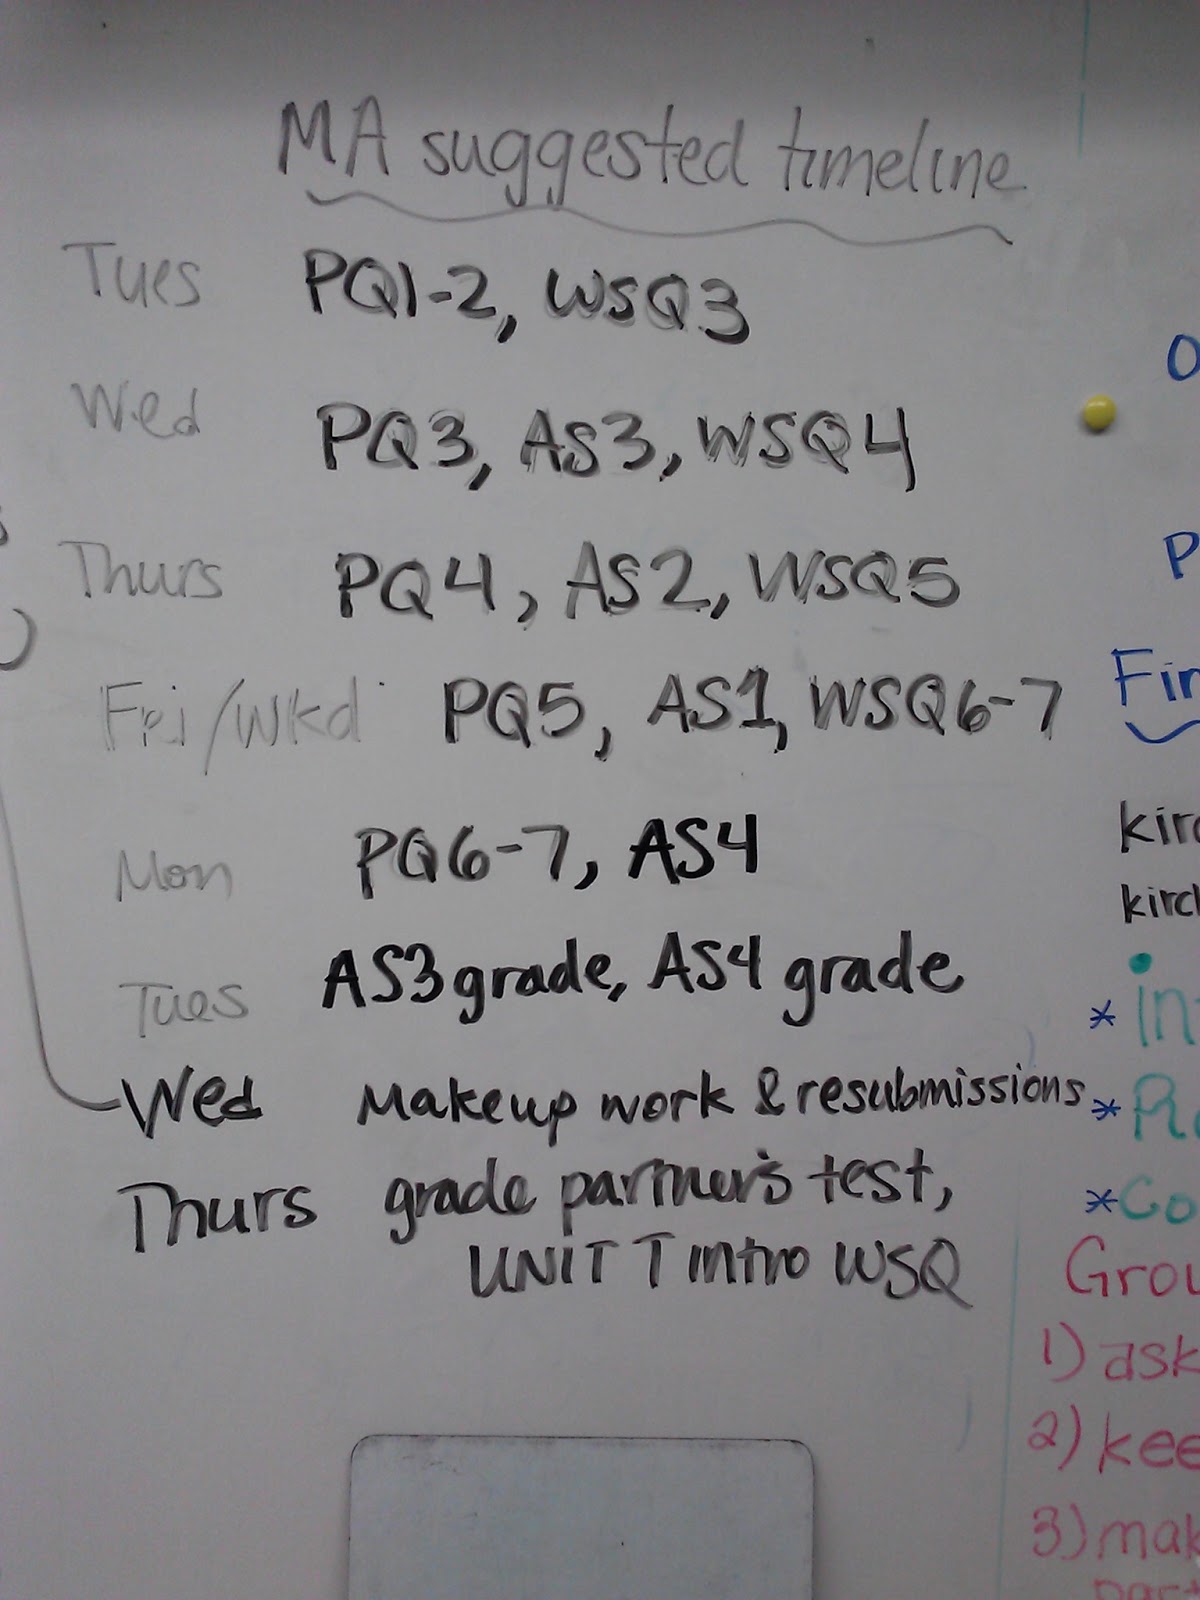 MA suggested timeline
Tues PQ1-2, WSQ3
Wed PQ3, AS3, WSQ4
Thurs PQ4, AS2, WSQ5
Fri/Wkd PQ5, AS1, WSQ6-7
Mon PQ6-7, AS4
Tues AS3 grade, AS4 grade
Wed Makeup work & resubmissions
Thurs grade partner's test,
UNIT T intro WSQ
Fin
kirc
kirch
* in
*
* Co
Grou
1) ask
2) kee
3) mak
part